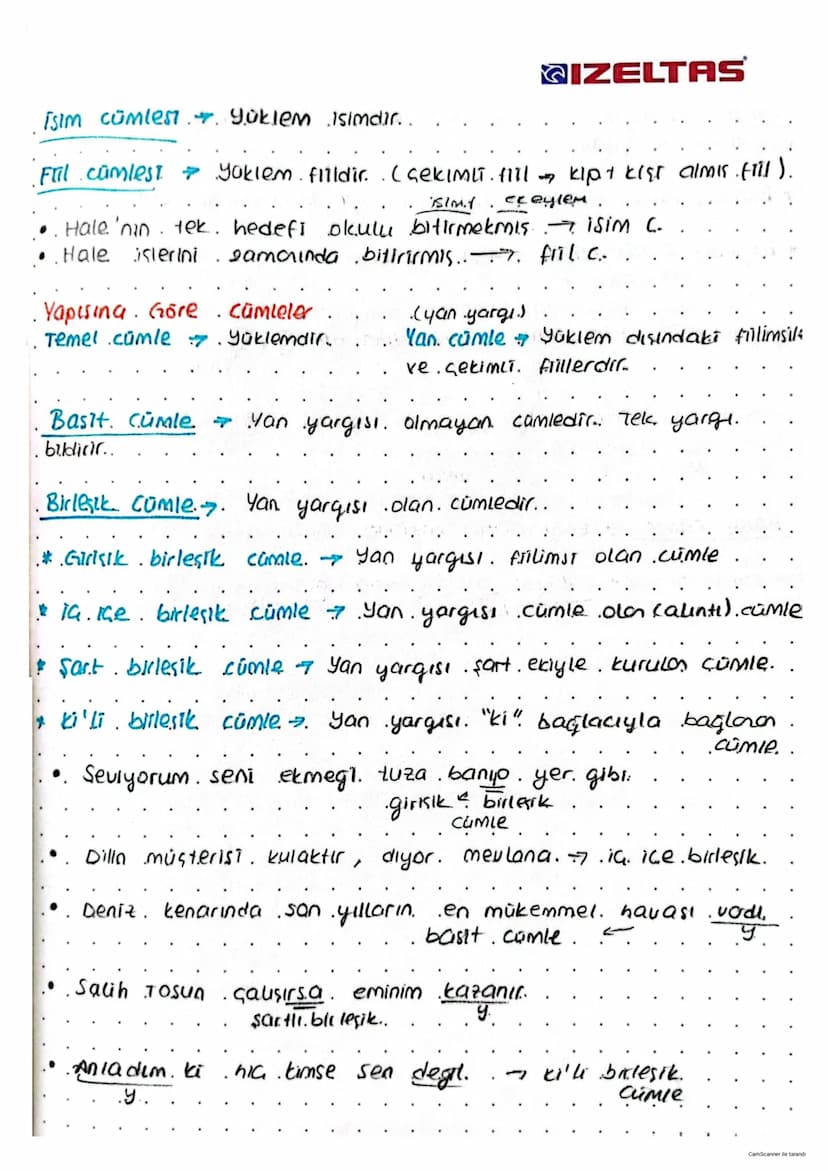 IZELTAS
İsim cümlesi → Yüklem isimdir.
Fiil cümlesi → Yüklem fiildir. (çekimli fiil → kip + kişi almış fiil).
isim-f. ek eylem
• Hale'nin tek hedefi okulu bitirmekmiş → isim c.
• Hale işlerini zamanında bitirirmiş. → fiil c.
Yapısına Göre Cümleler
(yan yargı)
Temel cümle → Yüklemdir. Yan cümle → Yüklem dışındaki fiilimsi
ve çekimli fiillerdir.
Basit Cümle → Yan yargısı olmayan cümledir. Tek yargı
bildirir.
Birleşik Cümle → Yan yargısı olan cümledir.
* Girişik birleşik cümle → Yan yargısı fiilimsi olan cümle
* iç içe birleşik cümle → Yan yargısı cümle olan (alıntı) cümle
* Şart birleşik cümle → Yan yargısı şart ekiyle kurulan cümle.
* ki'li birleşik cümle → Yan yargısı "ki" bağlacıyla bağlanan
cümle.
• Seviyorum seni ekmeği tuza banıp yer gibi
girişik ← birleşik
cümle
• Dilin müşterisi kulaktır, diyor mevlana → iç içe birleşik.
• Deniz kenarında son yılların en mükemmel havası vardı.
basit cümle ← y
• Salih Tosun çalışırsa eminim kazanır.
şartlı birleşik. y
• Anladım ki hiç kimse sen değil. → ki'li birleşik
y cümle
CamScanner ile tarandı